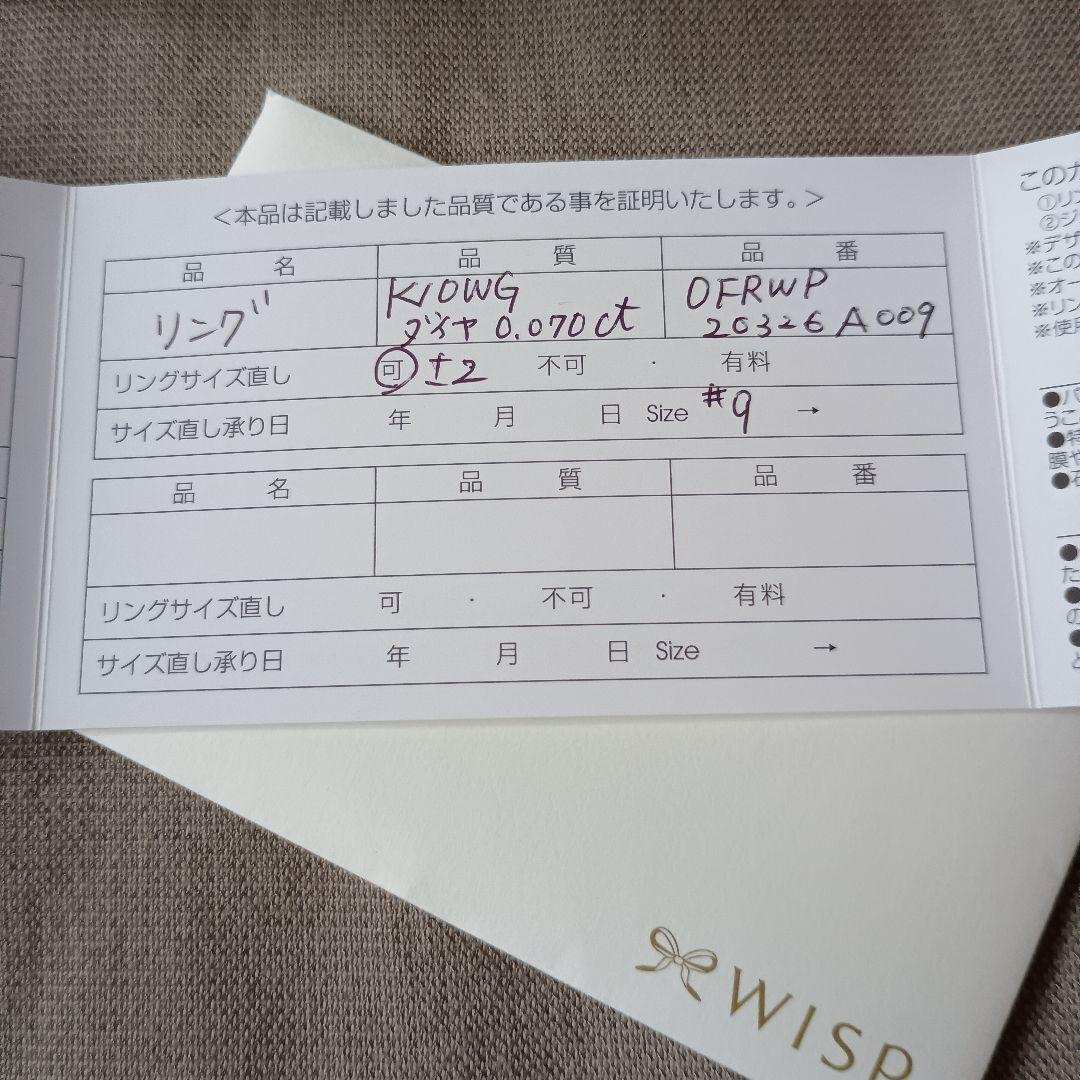 ＜本品は記載しました品質である事を証明いたします。＞
品 名 品 質 品 番
リング K10WG OFRWP
ダイヤ 0.070ct 20326A009
リングサイズ直し 可 ±2 不可 · 有料
サイズ直し承り日 年 月 日 Size #9 →
品 名 品 質 品 番
リングサイズ直し 可 · 不可 · 有料
サイズ直し承り日 年 月 日 Size →
このカ
①リン
②ジ
※デザ
※この
※オー
※リン
※使用
●パ
うこ
●特
膜や
●石
●
た
●
の
●
と
WISP